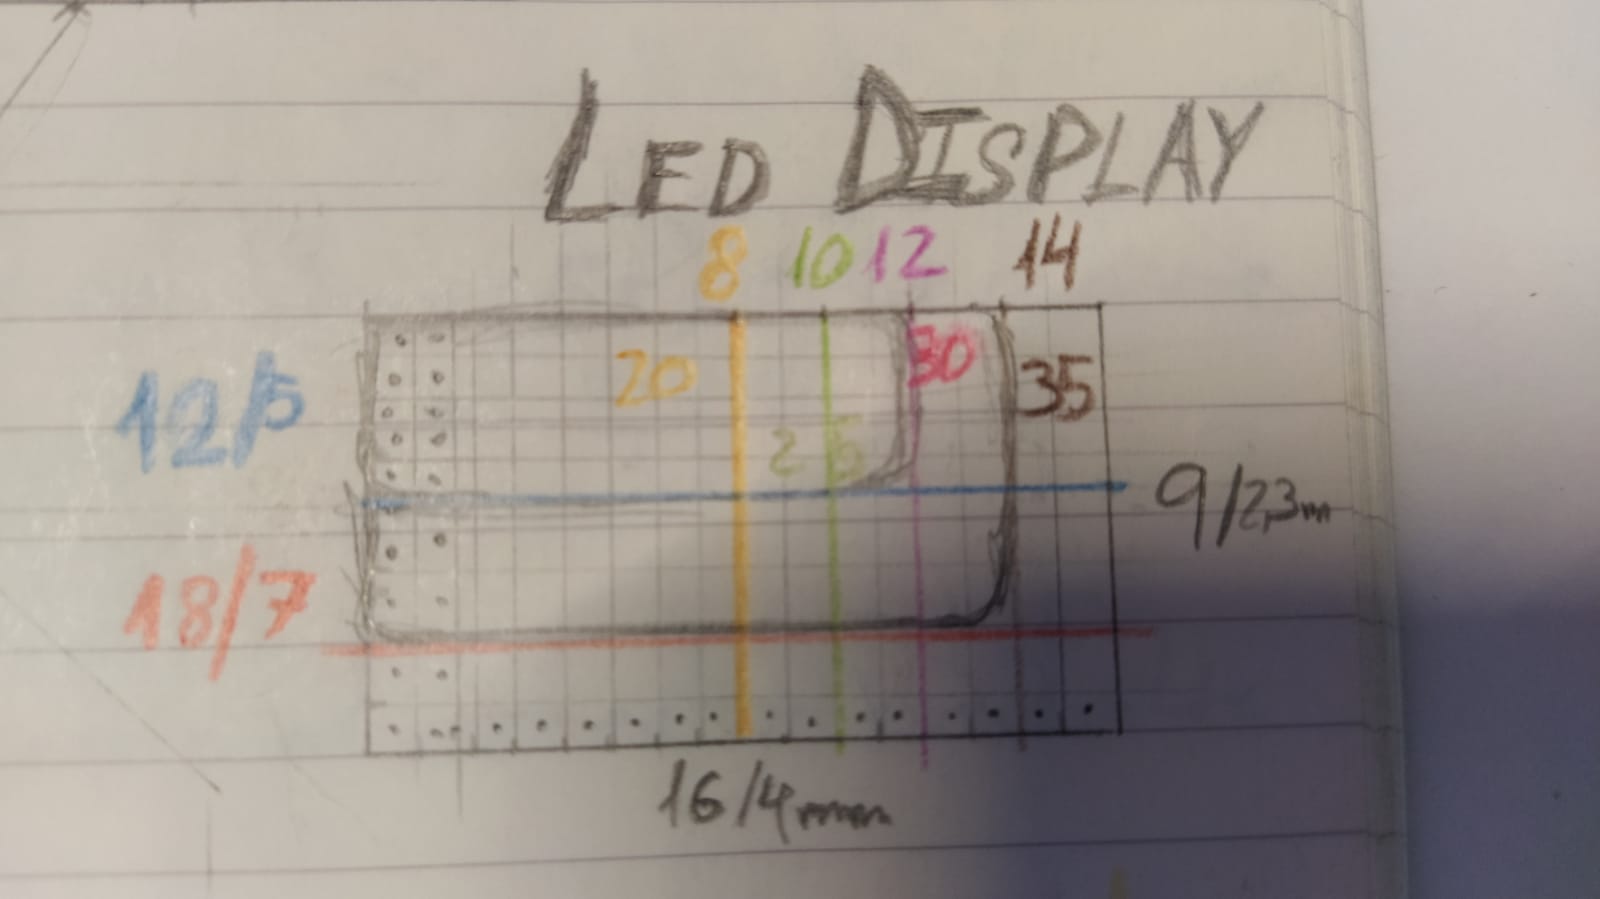 LED DISPLAY
8 10 12 14
20 30 35
12/5
25
9/2,3m
18/7
16/4mm